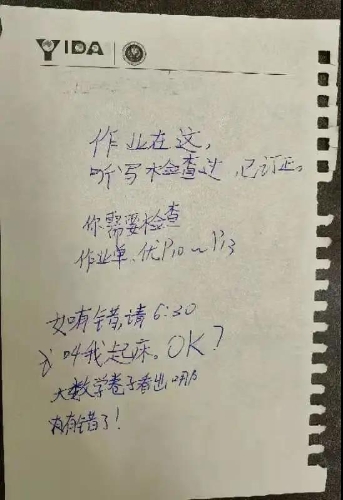 YIDA
作业在这,
听写检查过,已订正。
你需要检查
作业单、优P10~P13
如有错,请6:30
叫我起床。OK?
大数学卷子看出哪
有错了!